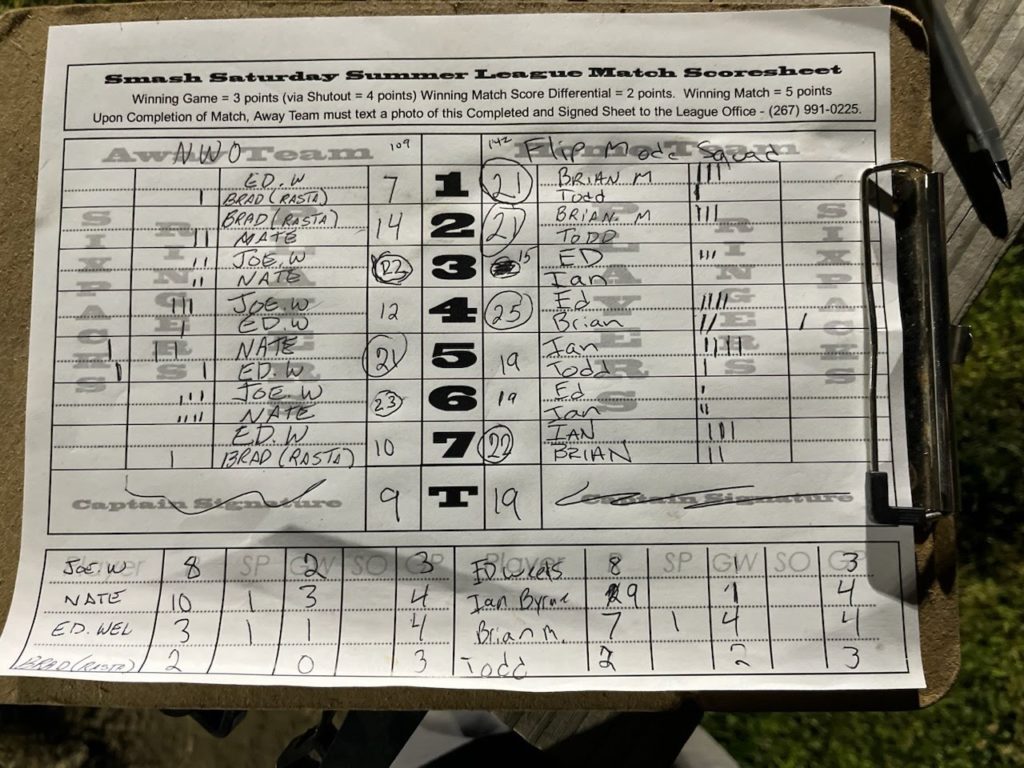 Smash Saturday Summer League Match Scoresheet
Winning Game = 3 points (via Shutout = 4 points) Winning Match Score Differential = 2 points. Winning Match = 5 points
Upon Completion of Match, Away Team must text a photo of this Completed and Signed Sheet to the League Office - (267) 991-0225.
Away Team NWO 109 142 Home Team Flip Mode Squad
SIXPACKS RINGERS PLAYERS PLAYERS RINGERS SIXPACKS
ED.W 7 1 21 BRIAN M
BRAD (RASTA) Todd
BRAD (RASTA) 14 2 21 BRIAN. M
NATE TODD
JOE. W 22 3 15 ED
NATE Ian
JOE. W 12 4 25 Ed
ED.W Brian
NATE 21 5 19 Ian
ED.W Todd
JOE. W 23 6 19 Ed
NATE Ian
ED.W 10 7 22 IAN
BRAD (RASTA) BRIAN
Captain Signature 9 T 19 Captain Signature
Player R SP GW SO GP Player R SP GW SO GP
JOE. W 8 2 3 ED Wells 8 1 3
NATE 10 1 3 4 Ian Byrne 9 1 4
ED. WEL 3 1 1 4 Brian M. 7 1 4 4
BRAD (RASTA) 2 0 3 Todd 2 2 3